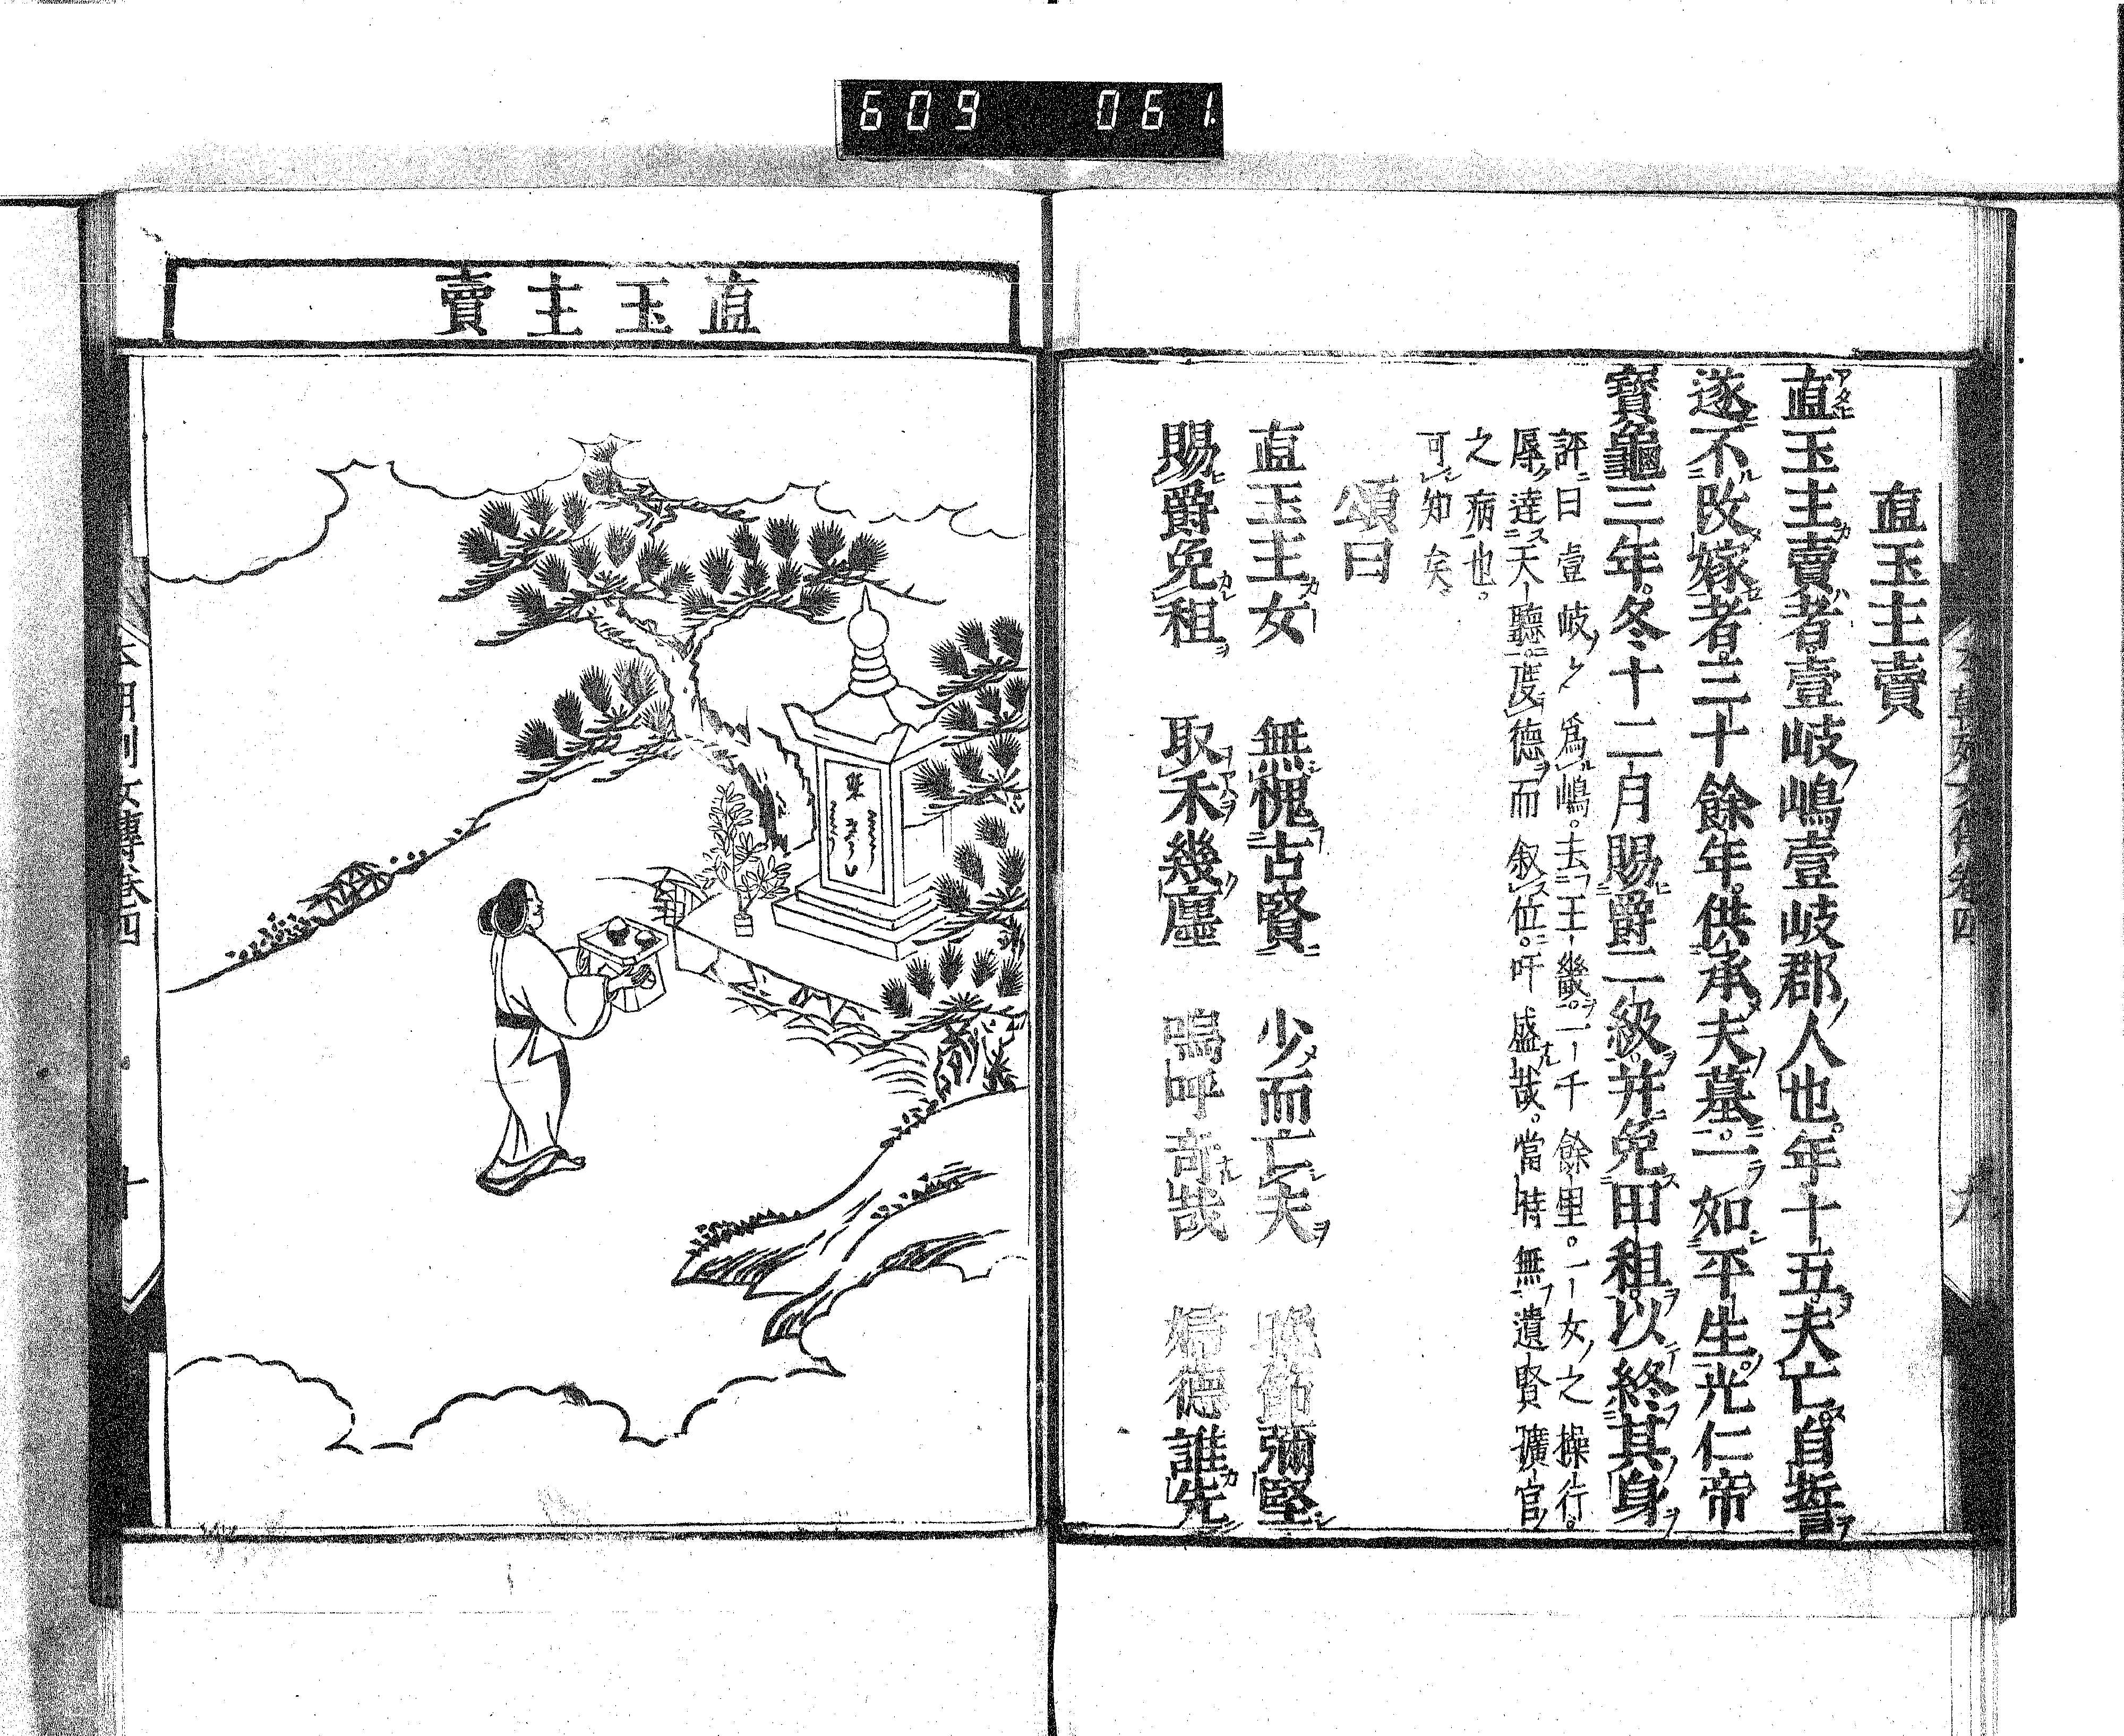 609 061
本朝列女傳卷四 九
直玉主賣
直玉主賣者壹岐嶋壹岐郡人也年十五夫亡自誓
遂不改嫁者三十餘年供承夫墓一如平生光仁帝
寶龜三年冬十二月賜爵二級并免田租以終其身
評曰壹岐之爲嶋去王畿一千餘里一女之操行
辱達天聽度德而叙位吁盛哉當時無遺賢曠官
之病也
可知矣
頌曰
直玉主女 無愧古賢 少而亡夫 節彌堅
賜爵免租 取禾幾廛 嗚呼奇哉 婦德誰先
直玉主賣
本朝列女傳卷四 十